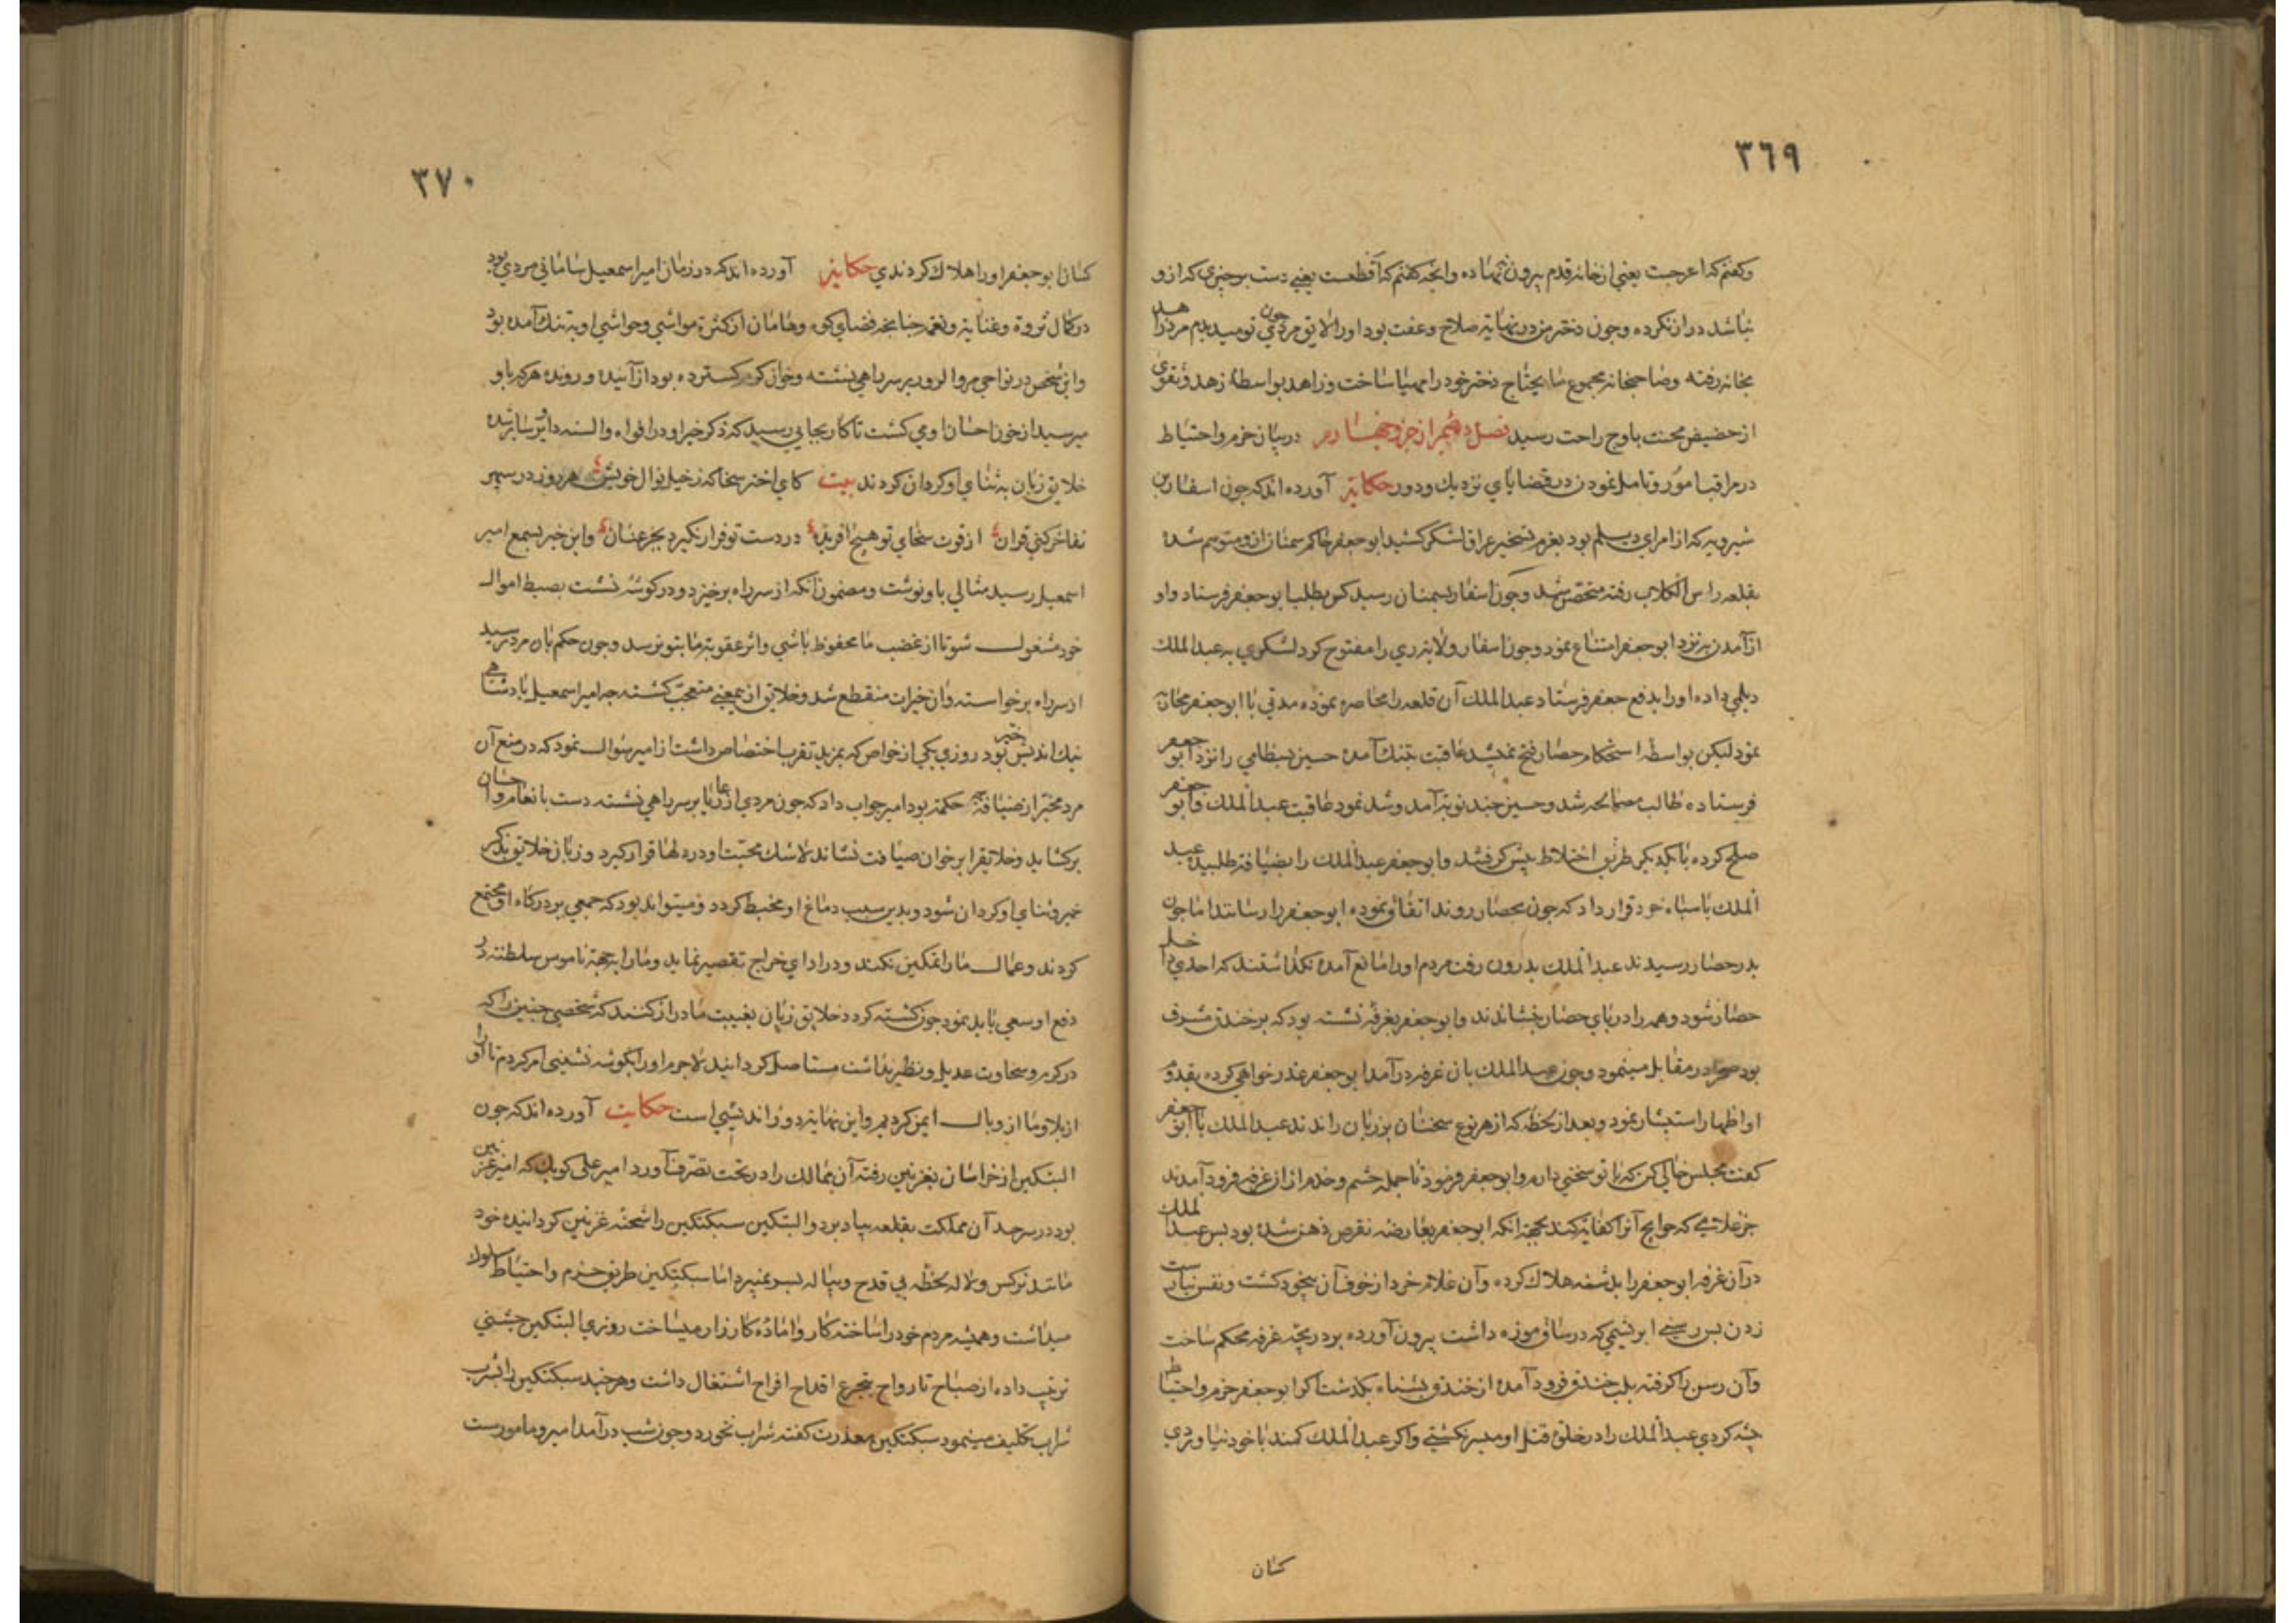 ٣٦٩
وكفتم كه اعرجست يعني از خانه قدم بيرون ننهاده وانچه كفتم كه اقطعست يعني دست بر چيزي كه ازو
نباشد دراز نكرده وچون دختر من در نهايت صلاح وعفت بود اورا لايق مردي چون تو ميديدم مرد زاهد
بخانه رفته وصاحبخانه مجموع ما يحتاج دختر خود را مهيا ساخت وزاهد بواسطه زهد وتقوى
از حضيض محنت باوج راحت رسيد فصل دهم از جزو چهارم در بيان حزم واحتياط
در مراقب امور وتامل نمودن در قضاياي نزديك ودور حكايت آورده اند كه چون اسفار بن
شيرويه كه از امراي ديلم بود بعزم تسخير عراق لشكر كشيد ابو جعفر حاكم سمنان ازو متوهم شده
بقلعه راس الكلاب رفته متحصن شد وچون اسفار بسمنان رسيد كس بطلب ابو جعفر فرستاد واو
از آمدن به نزد ابو جعفر امتناع نمود وچون اسفار ولايت ري را مفتوح كرد لشكري به عبد الملك
ديلمي داده اورا بدفع جعفر فرستاد عبد الملك آن قلعه را محاصره نموده مدتي با ابو جعفر محاربه
نمود ليكن بواسطه استحكام حصار فتح نميشد عاقبت بتنك آمده حسين بسطامي را نزد ابو جعفر
فرستاده طالب مصالحه شد وحسين چند نوبت آمد وشد نمود عاقبت عبد الملك وابو جعفر
صلح كرده با يكديكر طريق اختلاط پيش كرفتند وابو جعفر عبد الملك را بضيافت طلبيد عبد
الملك با سپاه خود قرار داد كه چون بحصار روند اتفاق نموده ابو جعفر را رسانند اما چون
بدر حصار رسيدند عبد الملك بدرون رفت مردم اورا مانع آمده نكذاشتند كه احدي داخل
حصار شود وهمه را در پاي حصار بنشاندند وابو جعفر بغرفه نشسته بود كه بر خندق مشرف
بود در مقابل مينمود وچون عبد الملك بان غرفه درآمد ابو جعفر عذر خواهي كرده بقدوم
او اظهار استبشار نمود وبعد از لحظه كه از هر نوع سخنان بر زبان راندند عبد الملك با ابو جعفر
كفت مجلس خالي كن كه با تو سخني دارم وابو جعفر فرمود تا جمله حشم وخدم از ان غرفه فرود آمدند
جز غلامي كه حوايج آنرا كفايت كند بجهة انكه ابو جعفر بعارضه نقرص ذهن شده بود پس عبد الملك
در آن غرفه ابو جعفر را بدشنه هلاك كرده وآن غلام خرد از خوف آن بيخود كشت ونفس نيارست
زدن پس رسني ابريشمي كه در ساق موزه داشت بيرون آورده بر دريچه غرفه محكم ساخت
وآن رسن را كرفته بلب خندق فرود آمده از خندق بشناه بكذشت اكر ابو جعفر حزم واحتياط
پيشه كردي عبد الملك را در خلوت قتل او ميسر نكشتي واكر عبد الملك كمند با خود نياوردي
كسان
٣٧٠
كسان ابو جعفر اورا هلاك كردندي حكايت آورده اند كه در زمان امير اسمعيل ساماني مردي بود
در كمال ثروة وغنايت ونعمت چنانچه فضاي كوه وهامان از كثرت مواشي وحواشي او بتنك آمده بود
واين شخص در نواحي مرو الرود بر سر راهي نشسته وخوان كرم كسترده بود از آينده ورونده هر كه باو
ميرسيد از خوان احسان او مي كشت تا كار بجايي رسيد كه ذكر خير او در افواه والسنه داير وساير شد
خلايق زبان به ثناي او كردان كردند بيت كاي اختر سخا كه ز خيل نوال خويش هر روز در سپهر
تفاخر كني قران از قوت سخاي تو هيچ افريده در دست تو قرار نكيرد بجز عنان واين خبر بسمع امير
اسمعيل رسيد مثالي باو نوشت ومضمون آنكه از سر راه برخيزد ودر كوشه نشست بضبط اموال
خود مشغول شو تا از غضب ما محفوظ باشي واثر عقوبت ما بتو نرسد وچون حكم بان مرد رسيد
از سر راه برخواسته وآن خيرات منقطع شد وخلايق از ين معني متعجب كشته چه امير اسمعيل پادشاهي
نيك انديش خير بود روزي يكي از خواص كه بمزيد تقرب اختصاص داشت از امير سوال نمود كه در منع آن
مرد مخير از ضيافت چه حكمت بود امير جواب داد كه چون مردي از رعايا بر سر راهي نشسته دست بانعام واحسان
بركشايد وخلايق را بر خوان ضيافت نشاند لا شك محبت او در دلها قرار كيرد وزبان خلايق بذكر
خير وثناي او كردان شود وبدين سبب دماغ او مخبط كردد وميتواند بود كه جمعي بر دركاه او مجتمع
كردند وعمال ما را تمكين نكنند ودر اداي خراج تقصير نمايد وما را بجهة ناموس سلطنت در
دفع او سعي بايد نمود چون كشته كردد خلايق زبان بغيبت ما دراز كنند كه شخصي چنين را كه
در كرم وسخاوت عديل ونظير نداشت مستاصل كردانيد لا جرم اورا بكوشه نشيني امر كردم تا اورا
از بلا وما از وبال ايمن كرديم واين نهايت دور انديشي است حكايت آورده اند كه چون
البتكين از خراسان بغزنين رفته آن ممالك را در تحت تصرف آورد امير علي كوبك كه امير غزنين
بود در سرحد آن مملكت بقلعه پياد برد والبتكين سبكتكين را شحنه غزنين كردانيده خود
مانند نركس ولاله لحظه بي قدح وپياله بسر نميبرد اما سبكتكين طريق حزم واحتياط سلوك
ميداشت وهميشه مردم خود را ساخته كار واماده كارزار ميساخت روزي البتكين جشني
ترتيب داده از صباح تا رواح بتجرع اقداح افراح اشتغال داشت وهر چند سبكتكين را بشرب
شراب تكليف مينمود سبكتكين معذرت كفته شراب نخورد وچون شب درآمد امير ومامورست